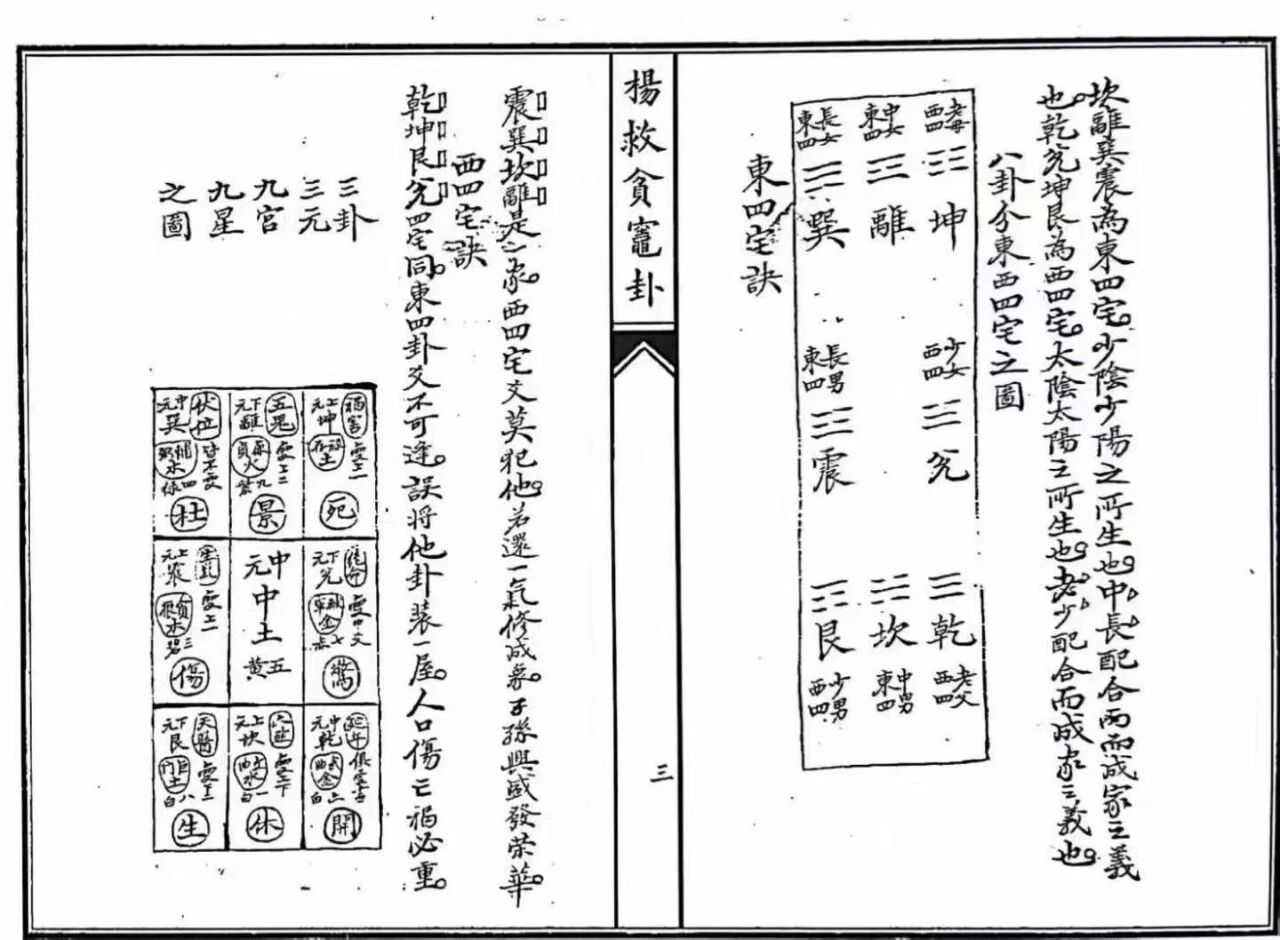 坎離巽震為東四宅。少陰少陽之所生也。中長配合而成家之義
也。乾兊坤艮為西四宅。太陰太陽之所生也。老少配合而成家之義也。
八卦分東西四宅之圖
老母
西四
☷
坤
中女
東四
☲
離
長女
東四
☴
巽
少女
西四
☱
兊
長男
東四
☳
震
老父
西四
☰
乾
☵
坎
中男
東四
☶
艮
少男
西四
東四宅訣
楊救貧竈卦
三
震巽坎離是一家。西四宅爻莫犯他。若還一氣修成象。子孫興盛發荣華。
西四宅訣
乾坤艮兊四宅同。東四卦爻不可逢。誤將他卦装一屋。人口傷亡禍必重。
三卦
三元
九宮
九星
之圖
禍害
上元
坤
土
死
五鬼
下元
離
廉貞
火
九紫
景
伏位
中元
巽
輔弼
木
四
杜
絕命
下元
兊
金
七赤
驚
中元
中土
五黃
上元
震
貪狼
木
三碧
傷
延年
中元
乾
武曲
金
六白
開
上元
坎
水
一白
休
天醫
下元
艮
巨門
土
八白
生